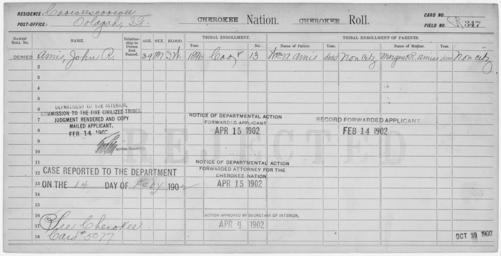 RESIDENCE: Cooweescoowee
POST-OFFICE: Oolagah, I.T.
CHEROKEE Nation. CHEROKEE Roll.
CARD NO.
FIELD NO. R 347
NAME
Relationship to Person first Named.
AGE SEX BLOOD
TRIBAL ENROLLMENT.
Year. No.
TRIBAL ENROLLMENT OF PARENTS.
Name of Father. Year. Name of Mother. Year.
DENIED Amis, John R. 39 M I.W. Coo 13 Wm Amis dead Non Citz Margaret R. Amis Non Citz
DEPARTMENT OF THE INTERIOR,
COMMISSION TO THE FIVE CIVILIZED TRIBES.
JUDGMENT RENDERED AND COPY
MAILED APPLICANT.
FEB 14 1902
NOTICE OF DEPARTMENTAL ACTION
FORWARDED APPLICANT
APR 15 1902
RECORD FORWARDED APPLICANT
FEB 14 1902
REJECTED
NOTICE OF DEPARTMENTAL ACTION
FORWARDED ATTORNEY FOR THE
CHEROKEE NATION
APR 15 1902
CASE REPORTED TO THE DEPARTMENT
ON THE 14 DAY OF Feby 1902
ACTION APPROVED BY SECRETARY OF INTERIOR.
APR 1902
See Cherokee
Card # 5077
OCT 1900